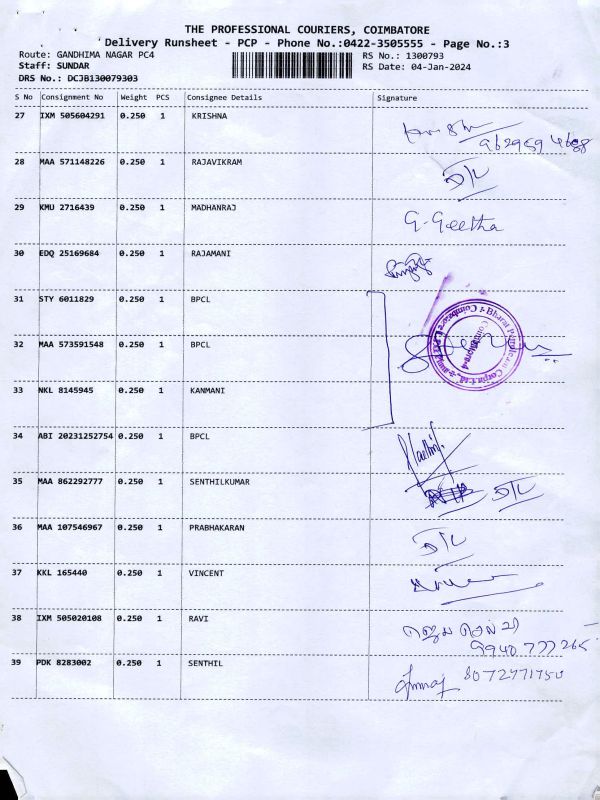 THE PROFESSIONAL COURIERS, COIMBATORE
Delivery Runsheet - PCP - Phone No.:0422-3505555 - Page No.:3
Route: GANDHIMA NAGAR PC4 RS No.: 1300793
Staff: SUNDAR RS Date: 04-Jan-2024
DRS No.: DCJB130079303
S No Consignment No Weight PCS Consignee Details Signature
27 IXM 505604291 0.250 1 KRISHNA
28 MAA 571148226 0.250 1 RAJAVIKRAM D/L
29 KMU 2716439 0.250 1 MADHANRAJ G-Geetha
30 EDQ 25169684 0.250 1 RAJAMANI
31 STY 6011829 0.250 1 BPCL
32 MAA 573591548 0.250 1 BPCL
33 NKL 8145945 0.250 1 KANMANI
34 ABI 20231252754 0.250 1 BPCL
35 MAA 862292777 0.250 1 SENTHILKUMAR D/L
36 MAA 107546967 0.250 1 PRABHAKARAN D/L
37 KKL 165440 0.250 1 VINCENT
38 IXM 505020108 0.250 1 RAVI
9940 777 265
39 PDK 8283002 0.250 1 SENTHIL 8072771750